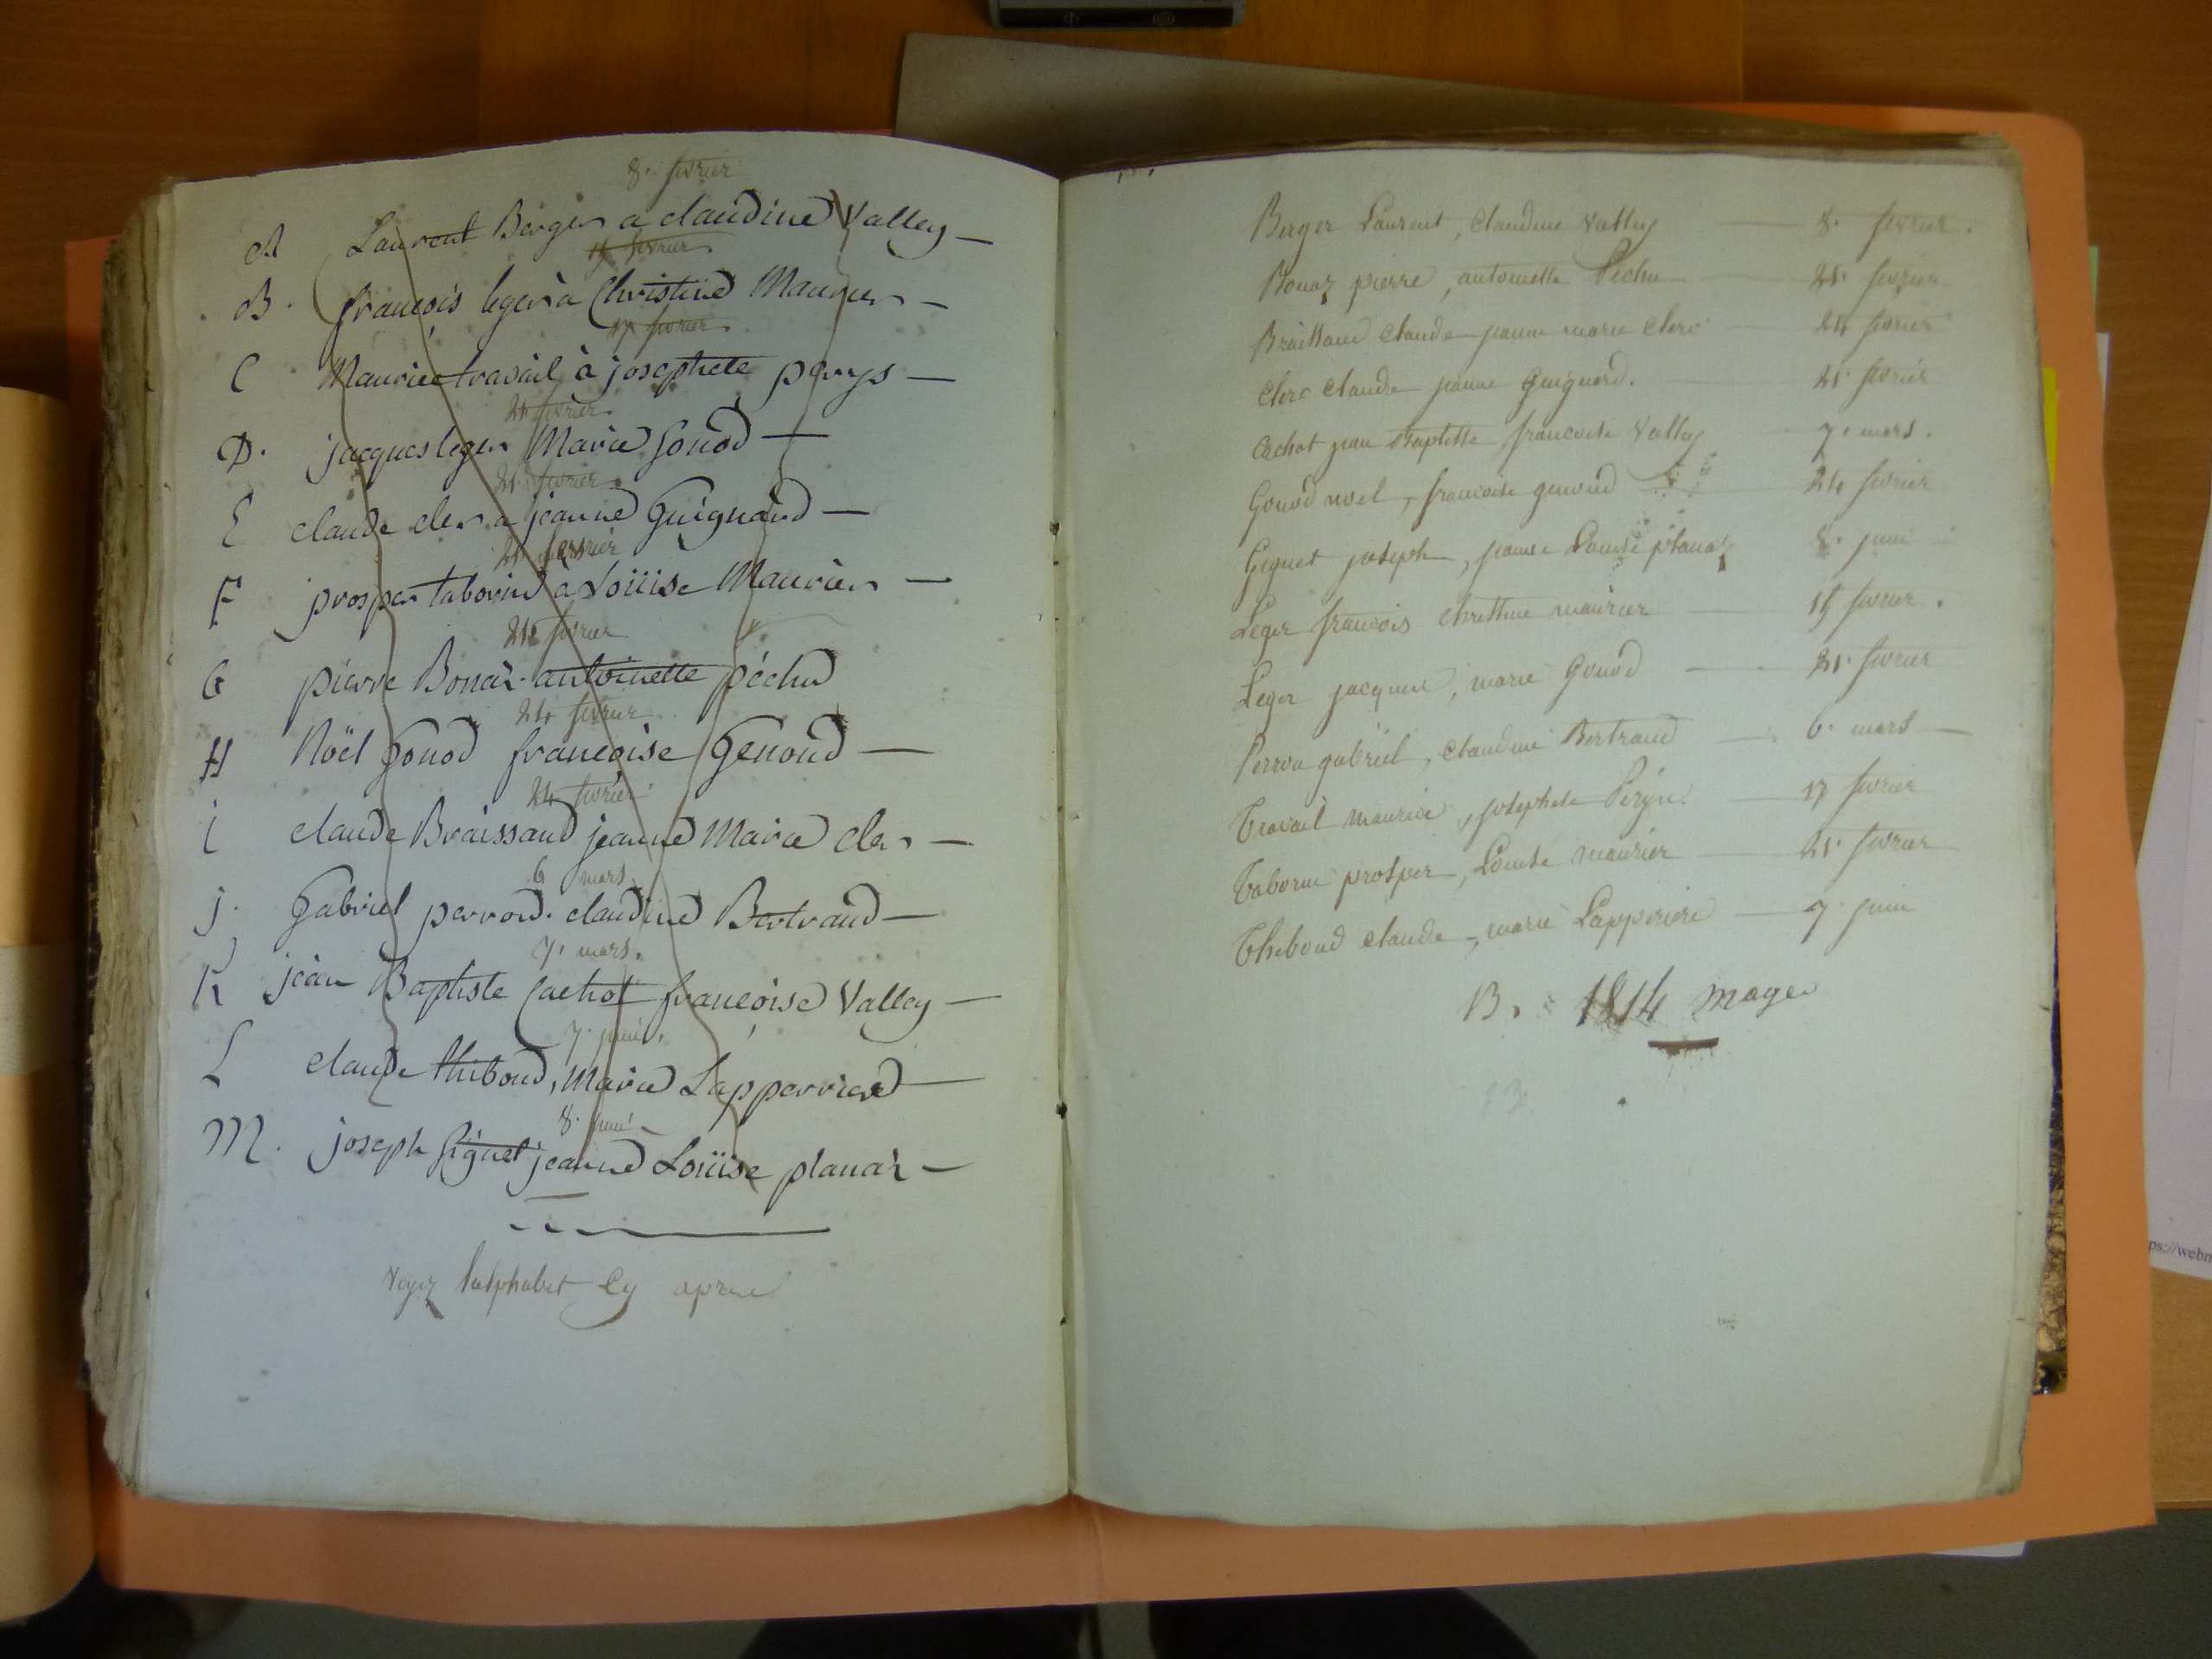 8. fevrier
A Laurent Berger a claudine Valley —
15 fevrier
B. francois leger à Christine Maurier —
17 fevrier
C Maurice travail à josephete perys —
21 fevrier
D. jacques leger Marie Gonod —
21. fevrier
E claude cler a jeanne Guignard —
21. fevrier
F prosper taborin a Loüise Maurier —
21 fevrier
G pierre Bonaz antoinette péchu
24 fevrier
H Noël Gonod francoise Genoud —
24 fevrier
i claude Braissand jeanne Marie cler —
6 mars
j. Gabriel perrod. claudine Bertrand —
7. mars.
K jean Baptiste Cachot francoise Valley —
7. juin.
L claude thiboud, Marie Lapperriere —
8. juin
M. joseph Giguet jeanne Loüise planaz —
Voyez l'alphabet Cy apres
Berger Laurent, Claudine Valley — 8. fevrier.
Bonaz pierre, antoinette Pechu — 21. fevrier
Braissand Claude jeanne marie Clerc — 24 fevrier
Clerc Claude jeanne Guignard. — 21. fevrier
Cachot jean Baptiste francoise Valley 7. mars.
Gonod noel, francoise genoud — 24 fevrier
Giguet joseph, jeanne Louise planaz 8. juin
Leger francois Christine maurier — 15 fevrier.
Leger jacques, marie Gonod — 21. fevrier
Perrod gabriel, Claudine Bertrand — 6. mars —
Travail maurice, josephete Perys. — 17 fevrier
Taborin prosper, Louise maurier — 21. fevrier
Thiboud claude, marie Lapperriere — 7. juin
B. 1814 mage
13
ps://webm